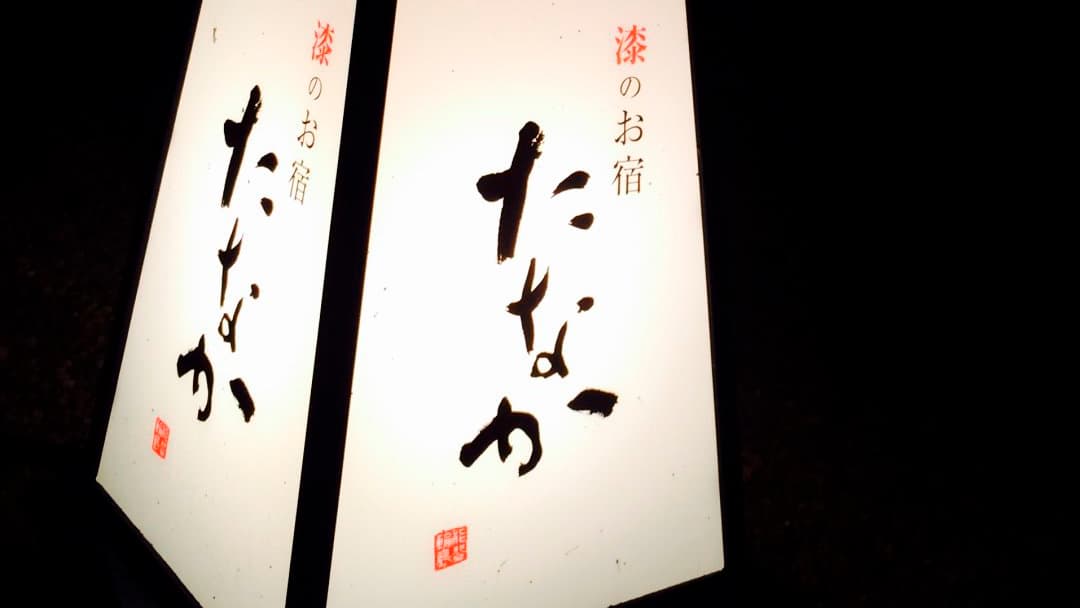 漆のお宿
たなか
漆のお宿
たなか